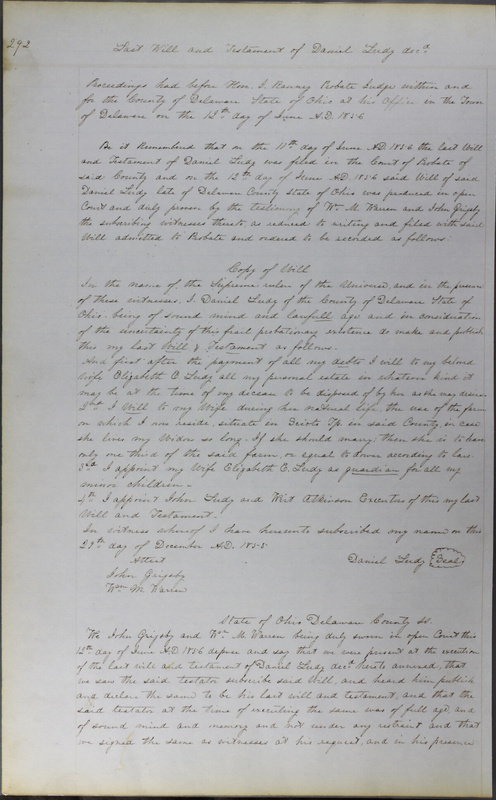 292
Last Will and Testament of Daniel Ludy decd.
Proceedings had before Hon. T. Ranney Probate Judge within and
for the County of Delaware State of Ohio at his Office in the Town
of Delaware on the 12th day of June A.D. 1856
Be it Remembered that on the 11th day of June A.D. 1856 the last Will
and Testament of Daniel Ludy was filed in the Court of Probate of
said County and on the 12th day of June A.D. 1856 said Will of said
Daniel Ludy late of Delaware County State of Ohio was produced in open
Court and duly proven by the testimony of Wm. M. Warren and John Grigsby
the subscribing witnesses thereto, as reduced to writing and filed with said
Will admitted to Probate and ordered to be recorded as follows:
Copy of Will
In the name of the Supreme ruler of the Universe, and in the presence
of these witnesses. I Daniel Ludy of the County of Delaware State of
Ohio being of sound mind and lawfull age and in consideration
of the uncertainty of this frail probationary existence do make and publish
this my last Will & Testament as follows.
And first after the payment of all my debts I will to my beloved
Wife Elizabeth C. Ludy all my personal estate in whatever kind it
may be at the time of my decease to be disposed of by her as she may desire
2nd I Will to my Wife during her natural life, the use of the farm
on which I now reside, situate in Scioto Tp. in said County, in case
she lives my Widow so long. If she should marry, then she is to have
only one third of the said farm, or equal to dower according to law.
3rd I appoint my Wife Elizabeth C. Ludy as guardian for all my
minor children -
4th I appoint John Ludy and Wert Atkinson Executors of this my last
Will and Testament.
In witness whereof I have hereunto subscribed my name on this
29th day of December A.D. 1855.
Attest Daniel Ludy Seal
John Grigsby
Wm. M. Warren
State of Ohio Delaware County ss.
We John Grigsby and Wm. M. Warren being duly sworn in open Court this
12th day of June A.D. 1856 depose and say that we were present at the execution
of the last will and testament of Daniel Ludy decd. hereto annexed, that
we saw the said testator subscribe said Will, and heard him publish
and declare the same to be his last will and testament, and that the
said testator at the time of executing the same was of full age, and
of sound mind and memory and not under any restraint and that
we signed the same as witnesses at his request, and in his presence